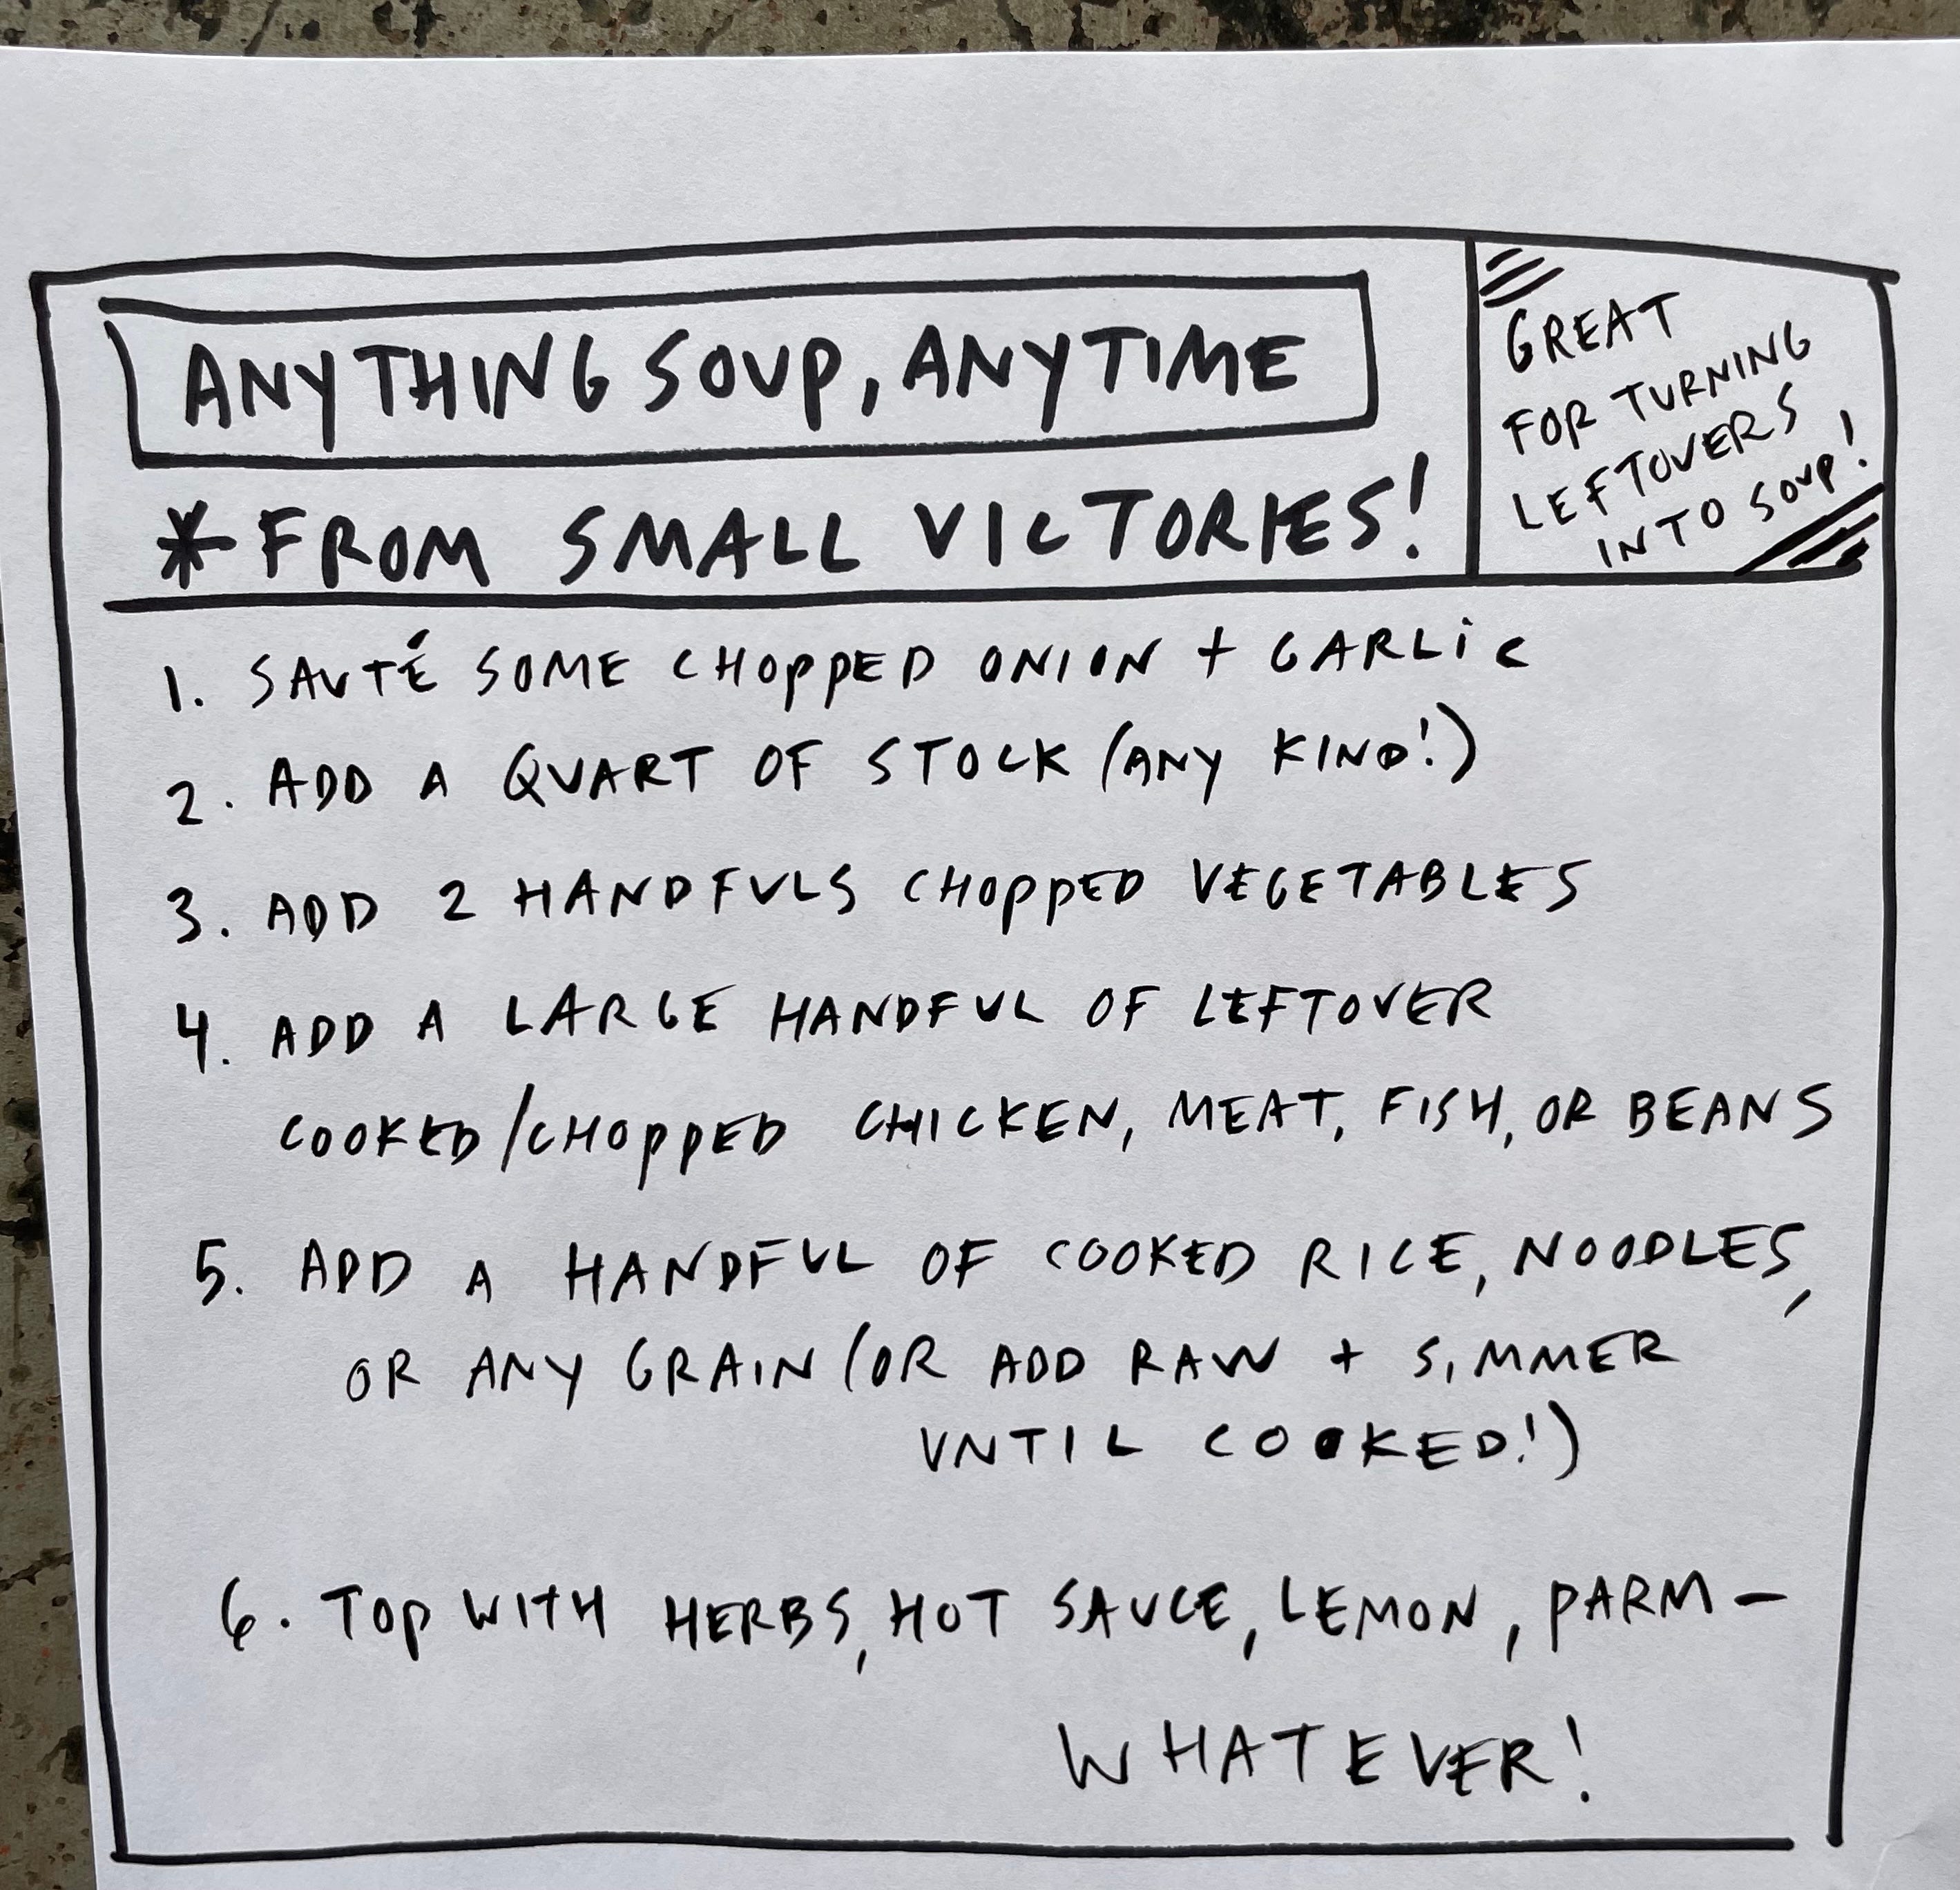 ANYTHING SOUP, ANYTIME
*FROM SMALL VICTORIES!
GREAT
FOR TURNING
LEFTOVERS
INTO SOUP!
1. SAUTÉ SOME CHOPPED ONION + GARLIC
2. ADD A QUART OF STOCK (ANY KIND!)
3. ADD 2 HANDFULS CHOPPED VEGETABLES
4. ADD A LARGE HANDFUL OF LEFTOVER
COOKED/CHOPPED CHICKEN, MEAT, FISH, OR BEANS
5. ADD A HANDFUL OF COOKED RICE, NOODLES,
OR ANY GRAIN (OR ADD RAW + SIMMER
UNTIL COOKED!)
6. TOP WITH HERBS, HOT SAUCE, LEMON, PARM —
WHATEVER!